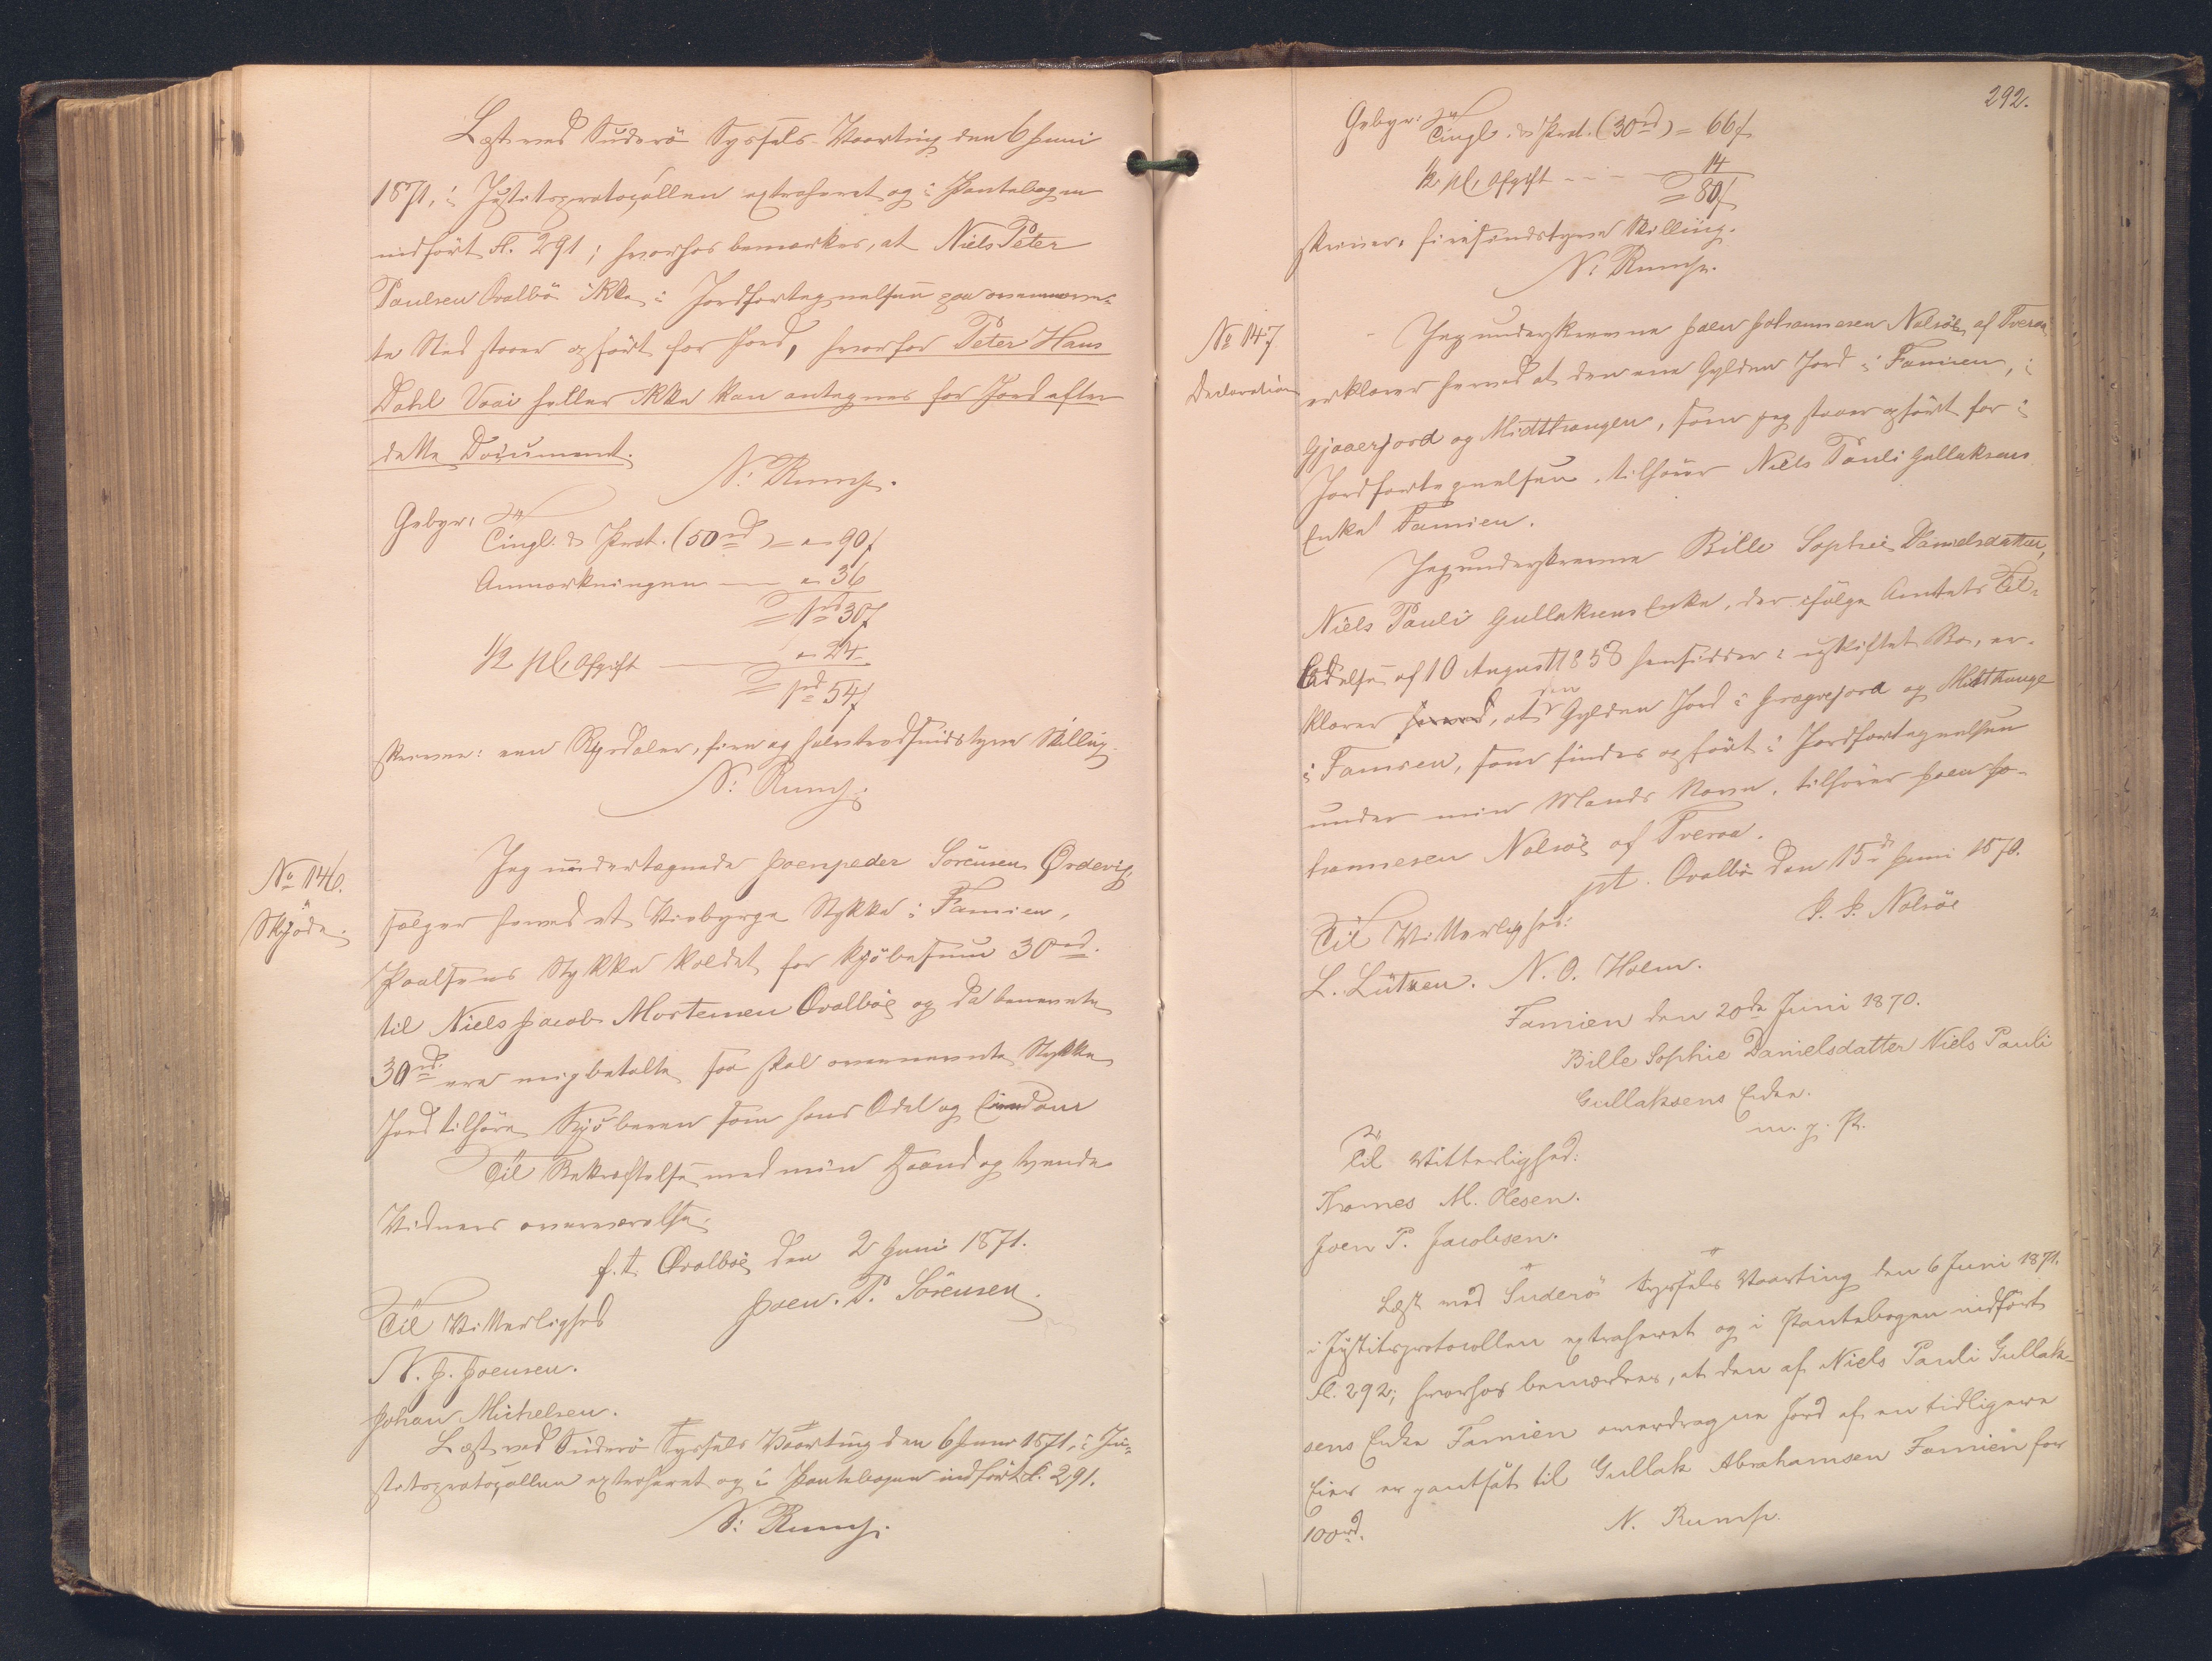 Læst ved Suderö Syssels-Vaarting den 6 Juni
1871, i Justitsprotocollen extraheret og i Pantebogen
indfört fl. 291; hvorhos bemærkes, at Niels Peter
Poulsen Qvalböe ikke i Jordfortegnelsen paa ovennævn-
te Sted staaer opfört for Jord, hvorfor Peter Hans
Dahl Vaai heller ikke kan antegnes for Jord efter
dette Document.
N: Rump.
Gebyr:
Tingl. & Prot. (50 rd) = " 90 ſ
Anmærkningen — " 36
= 1 rd 30 ſ
1/2 pCt Afgift — " 24
= 1 rd 54 ſ
skriver: een Rigsdaler, fire og halvtredsindstyve Skilling.
N: Rump.
No 146.
Skjöde.
Jeg undertegnede Joenpeder Sörensen Ördevig,
sælger herved et Viebyrge Stykke i Famien,
Poulsens Stykke kaldet for Kjöbesum 30 rd.
til Niels Jacob Mortensen Qvalböe og da benævnte
30 rd. ere mig betalte saa skal ovennævnte Stykke
Jord tilhöre Kjöberen som hans Odel og Eiendom
Til Bekræftelse med min Haand og tvende
Vidners overværelse.
p.t. Qvalböe den 2 Juni 1871.
Joen. P. Sörensen.
Til Vitterlighed
N. J. Joensen.
Johan Michelsen.
Læst ved Suderö Syssels Vaarting den 6 Juni 1871, i Ju-
stitsprotocollen extraheret og i Pantebogen indfört fl. 291.
N: Rump.
292.
Gebyr:
Tingl. & Prot. (30 rd) = 66 ſ
1/2 pCt Afgift - - - 14
= 80 ſ
skriver: firesindstyve Skilling.
N: Rump.
No 147
Declaration
Jeg underskrevne Joen Johannesen Nolsöe af Tveraa
erklærer herved at den ene Gylden Jord i Famien, i
Gjaaerjord og Midthaugen, som jeg staaer opfört for i
Jordfortegnelsen, tilhörer Niels Pauli Gullaksens
Enke Famien.
Jeg underskrevne Bille Sophie Danielsdatter,
Niels Pauli Gullaksens Enke, der ifölge Amtets Til-
ladelse af 10 August 1858 hensidder i uskiftet Bo, er-
klærer herved, at den Gylden Jord i og Midthauge
i Famien, som findes opfört i Jordfortegnelsen
under min Mands Navn, tilhörer Joen Jo-
hannesen Nolsöe af Tveraa.
pt. Qvalböe den 15 de Juni 1870.
J. J. Nolsöe
Til Vitterlighed:
L. Lützen. N. O. Holm.
Famien den 20de Juni 1870.
Bille Sophie Danielsdatter Niels Pauli
Gullaksens Enke.
m. f. P.
Til Vitterlighed:
Thomas M. Olesen.
Joen P. Jacobsen.
Læst ved Suderö Syssels Vaarting den 6 Juni 1871.
i Justitsprotocollen extraheret og i Pantebogen indfört
fl. 292; hvorhos bemærkes, at den af Niels Pauli Gullak-
sens Enke Famien overdragne Jord af en tidligere
Eier er pantsat til Gullak Abrahamsen Famien for
100 rd.
N. Rump.